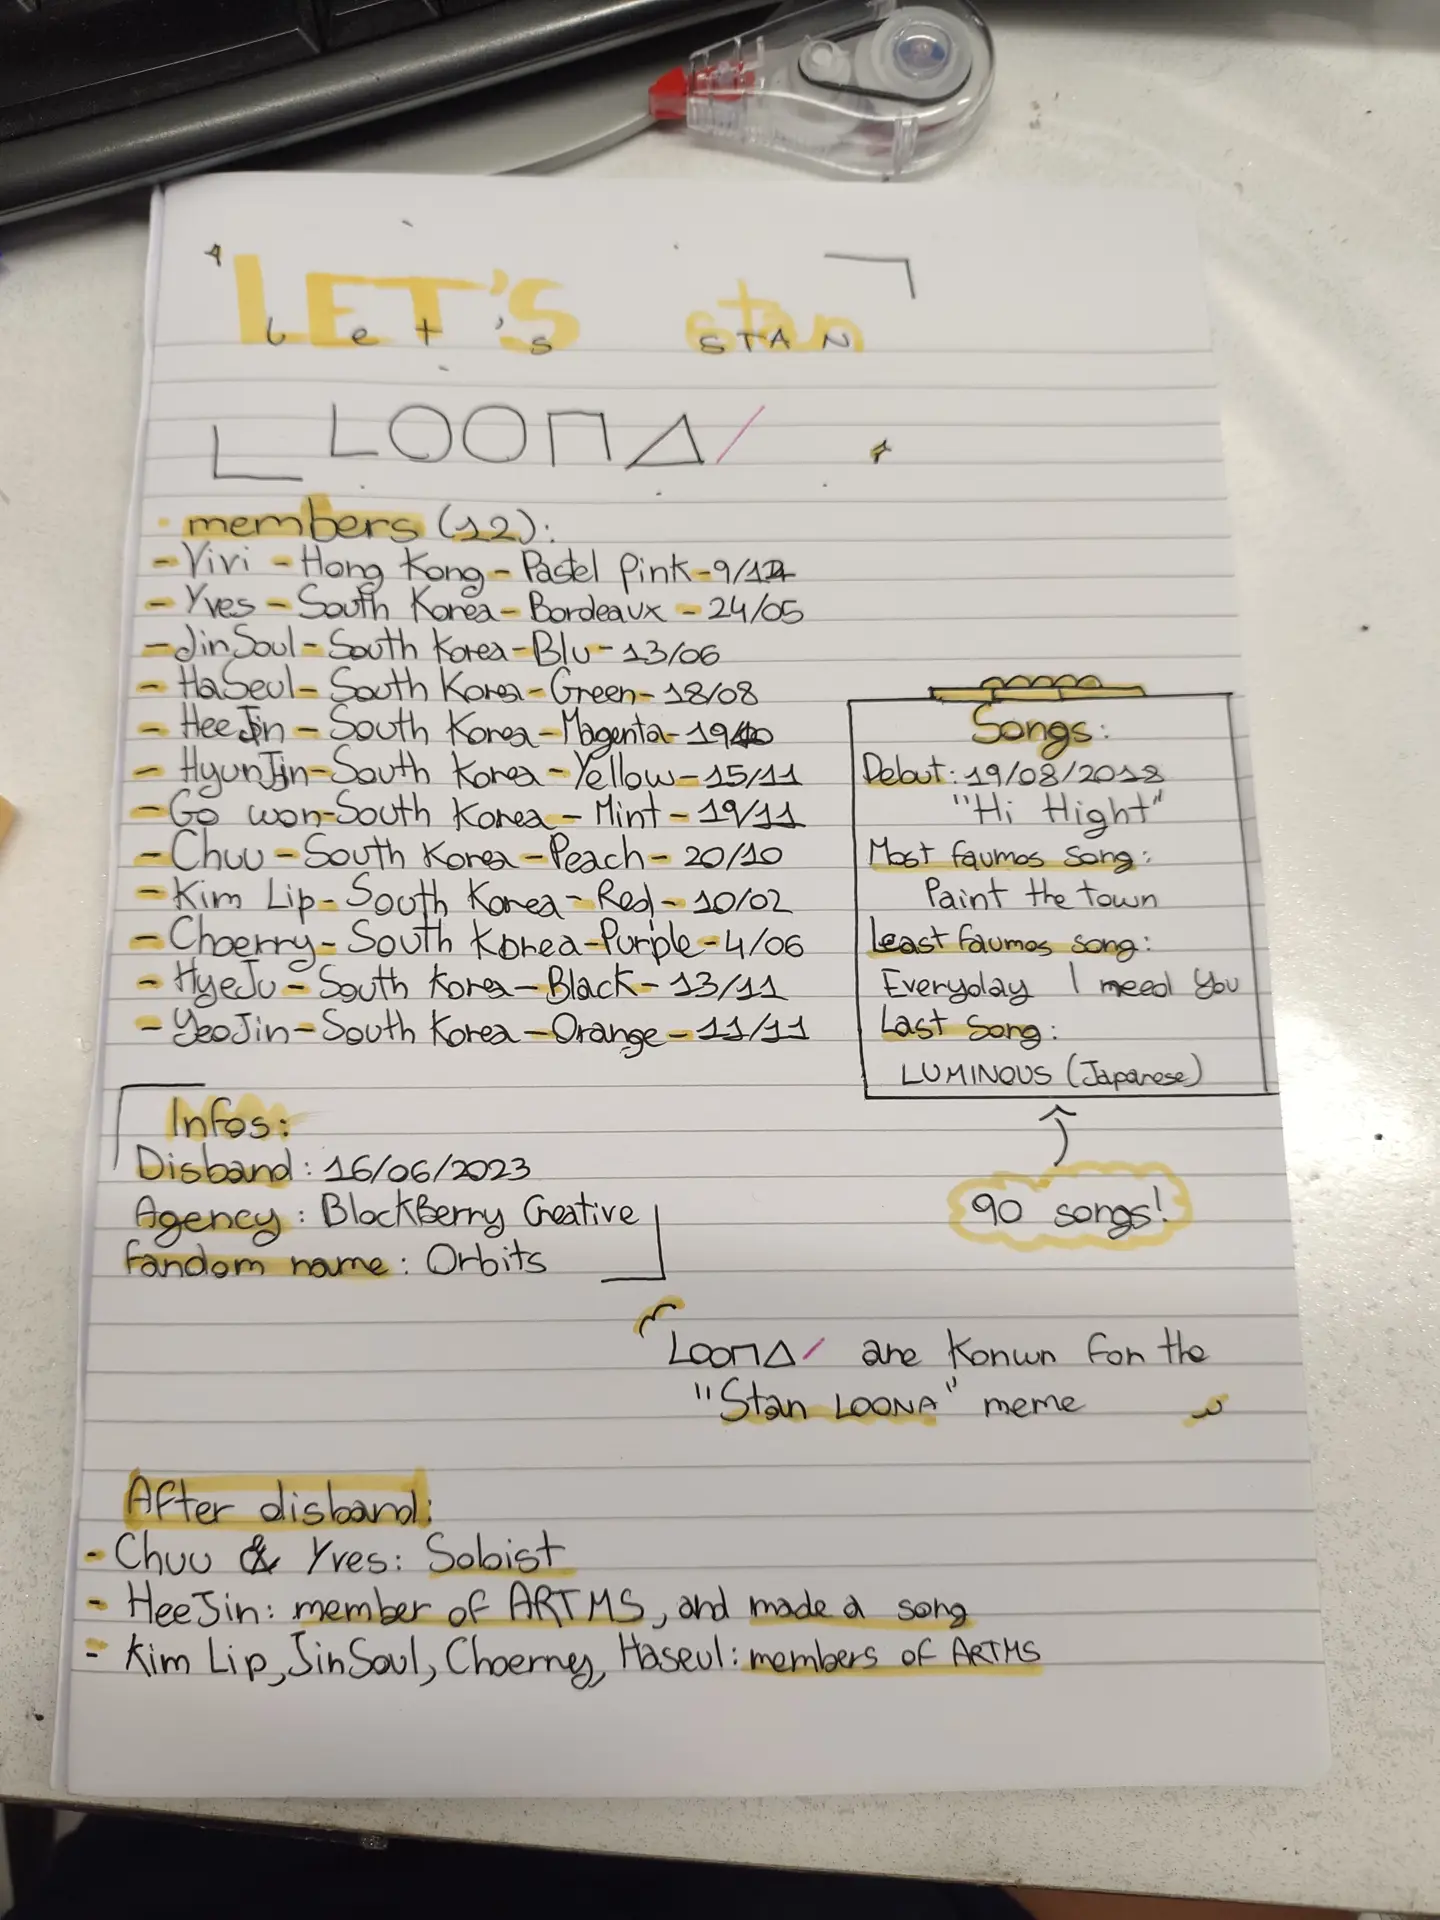 LET'S stan
let's STAN
LOONA/
members (12):
- Vivi - Hong Kong - Pastel pink - 9/12
- Yves - South Korea - Bordeaux - 24/05
- JinSoul - South Korea - Blu - 13/06
- HaSeul - South Korea - Green - 18/08
- HeeJin - South Korea - Magenta - 19/10
- HyunJin - South Korea - Yellow - 15/11
- Go won - South Korea - Mint - 19/11
- Chuu - South Korea - Peach - 20/10
- Kim Lip - South Korea - Red - 10/02
- Choerry - South Korea - Purple - 4/06
- HyeJu - South Korea - Black - 13/11
- YeoJin - South Korea - Orange - 11/11
Songs:
Debut: 19/08/2018
"Hi Hight"
Most faumos song:
Paint the town
Least faumos song:
Everyday I need You
Last Song:
LUMINOUS (Japanese)
90 songs!
Infos:
Disband: 16/06/2023
Agency: BlockBerry Creative
fandom name: Orbits
LOONA/ are Konwn for the
"Stan LOONA" meme
After disband:
- Chuu & Yves: Soloist
- HeeJin: member of ARTMS, and made a song
- Kim Lip, JinSoul, Choerry, Haseul: members of ARTMS